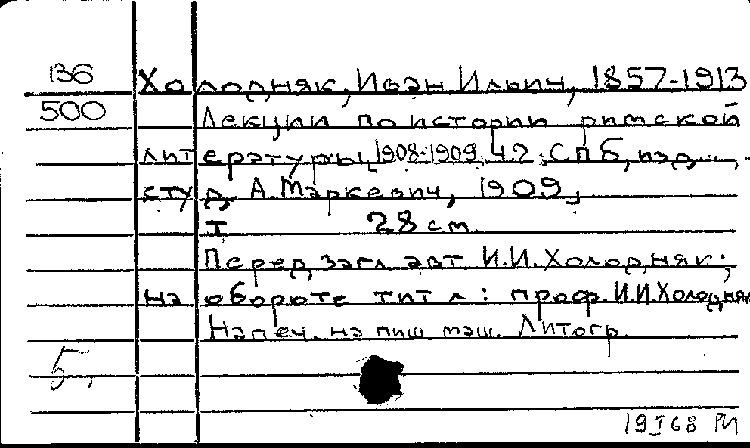 136 Холодняк, Иван Ильич, 1857-1913
500 Лекции по истории римской
литературы, 1908-1909, ч. 2, СПб, изд.
студ. А. Маркевич, 1909,
I 28 см.
Перед загл. авт. И.И. Холодняк;
на обороте тит л: проф. И.И. Холодняк
Напеч. на пиш. маш. Литогр.
5,
19 I 68